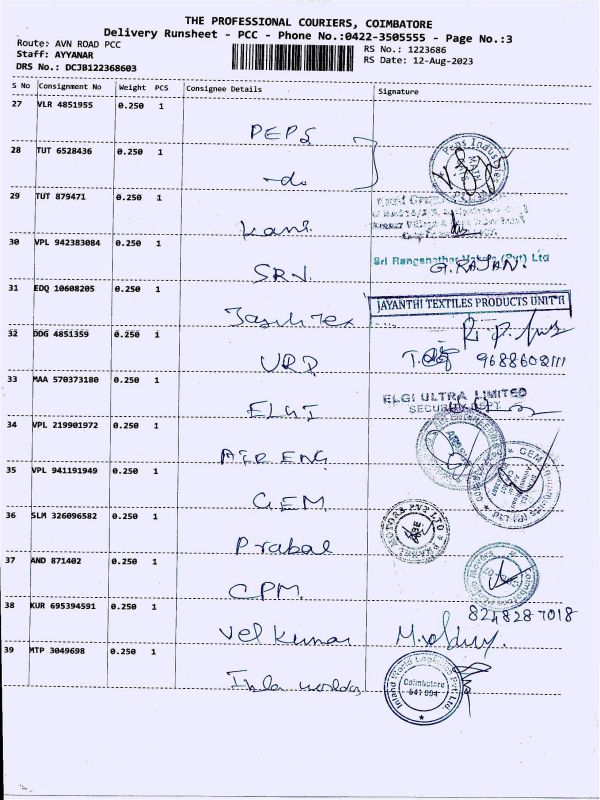 THE PROFESSIONAL COURIERS, COIMBATORE
Delivery Runsheet - PCC - Phone No.:0422-3505555 - Page No.:3
Route: AVN ROAD PCC
Staff: AYYANAR
DRS No.: DCJB122368603
RS No.: 1223686
RS Date: 12-Aug-2023
S No Consignment No Weight PCS Consignee Details Signature
27 VLR 4851955 0.250 1
PEPS
28 TUT 6528436 0.250 1
-do
29 TUT 879471 0.250 1
30 VPL 942383084 0.250 1
Sri Ranganathar (Pvt) Ltd
SRN. G.RAJAN.
31 EDQ 10608205 0.250 1
JAYANTHI TEXTILES PRODUCTS UNIT-II
32 DDG 4851359 0.250 1
URD 9688602111
33 MAA 570373180 0.250 1
ELGI ULTRA LIMITED
SECURITY DEPT
ELGI
34 VPL 219901972 0.250 1
ENG
35 VPL 941191949 0.250 1
GEM
36 SLM 326096582 0.250 1
Prabal
37 AND 871402 0.250 1
CPM
38 KUR 695394591 0.250 1
8248287018
Vel Kumar
39 MTP 3049698 0.250 1
Inland World Logistics Pvt Ltd.
Coimbatore
641 004